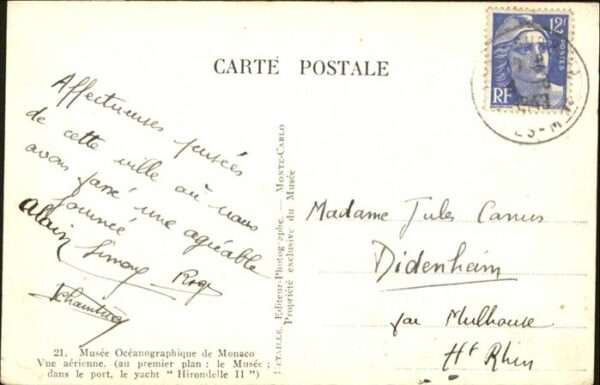 CARTE POSTALE
12F
POSTES
RF
ES-M
Affectueuses pensées
de cette ville où nous
avons passé une agréable
journée
Alain Simon
21. Musée Océanographique de Monaco
Vue aérienne. (au premier plan : le Musée ;
dans le port, le yacht " Hirondelle II ")
Editeur-Photographe. — MONTE-CARLO
Propriété exclusive du Musée
Madame Jules Camus
Didenheim
par Mulhouse
Ht Rhin